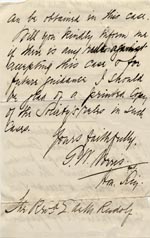 can be obtained in this case.
Will you kindly inform me
if there is any rule against
accepting this case & for
future guidance I should
be glad of a printed Copy
of the Society's rules in such
Cases.
Yours faithfully,
Hon. Secy.
The Revd. E. de M. Rudolf